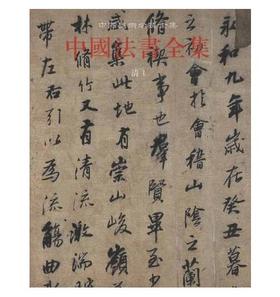 中國美術分類全集
中國法書全集
永和九年歲在癸丑暮
會於會稽山陰之蘭
脩禊事也羣賢畢至少
集此地有崇山峻嶺
林脩竹又有清流激湍
帶左右引以為流觴曲